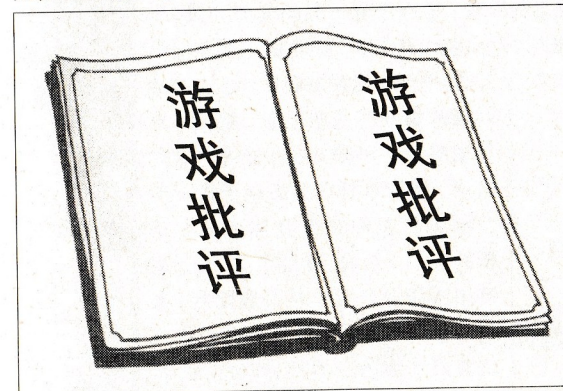 游戏批评
游戏批评